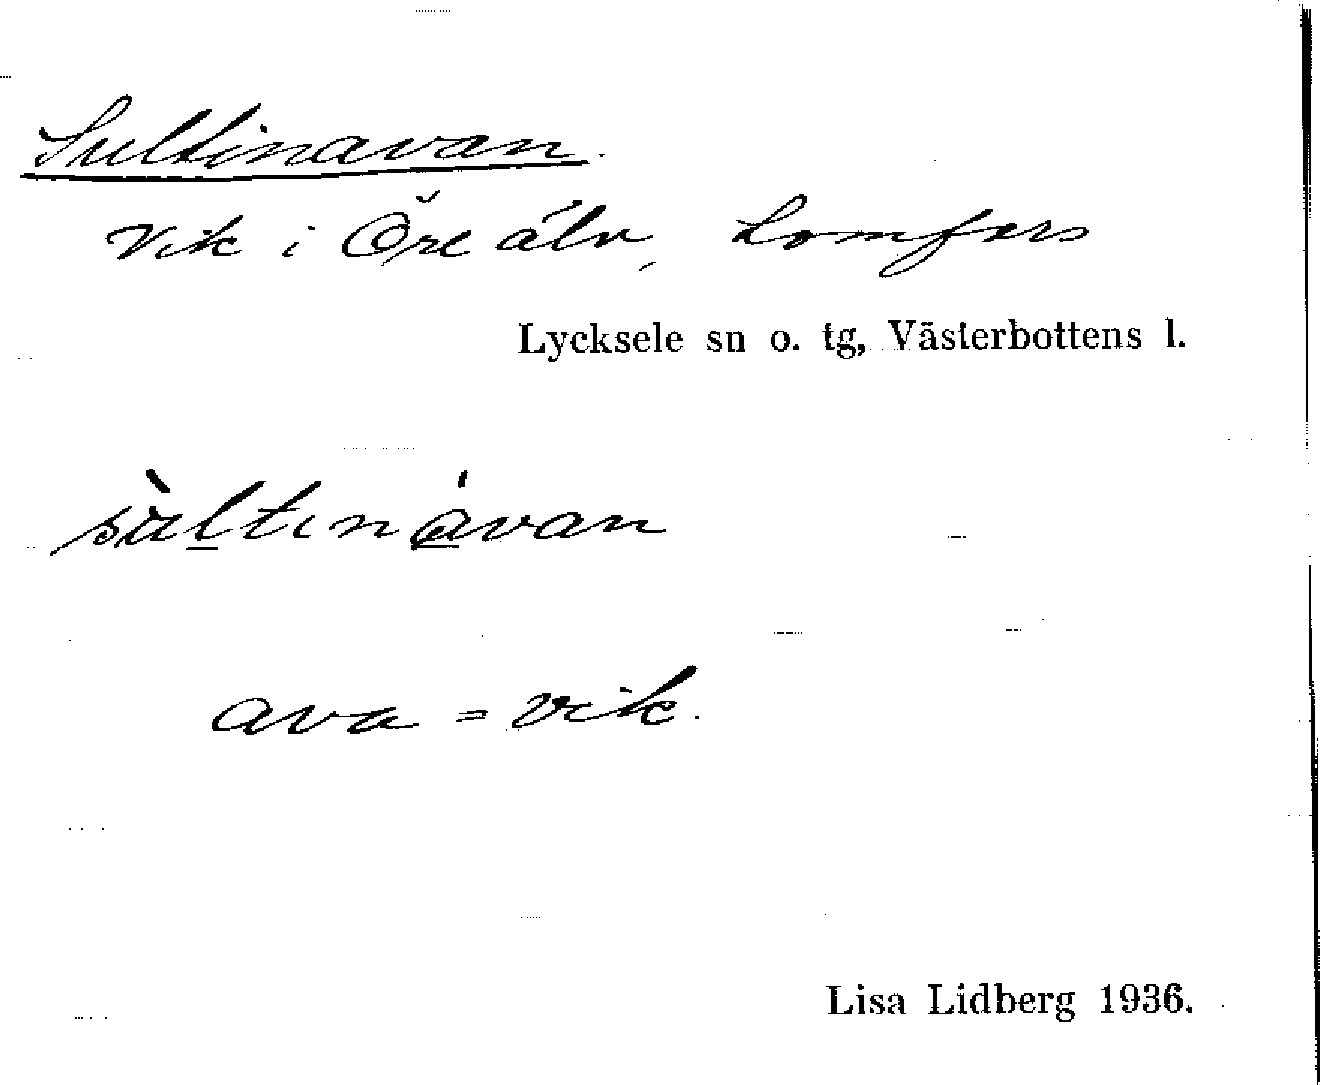 Sultinavan.
Vik i Öre älv, Lomfors
Lycksele sn o. tg, Västerbottens l.
sùltınávan
ava = vik.
Lisa Lidberg 1936.